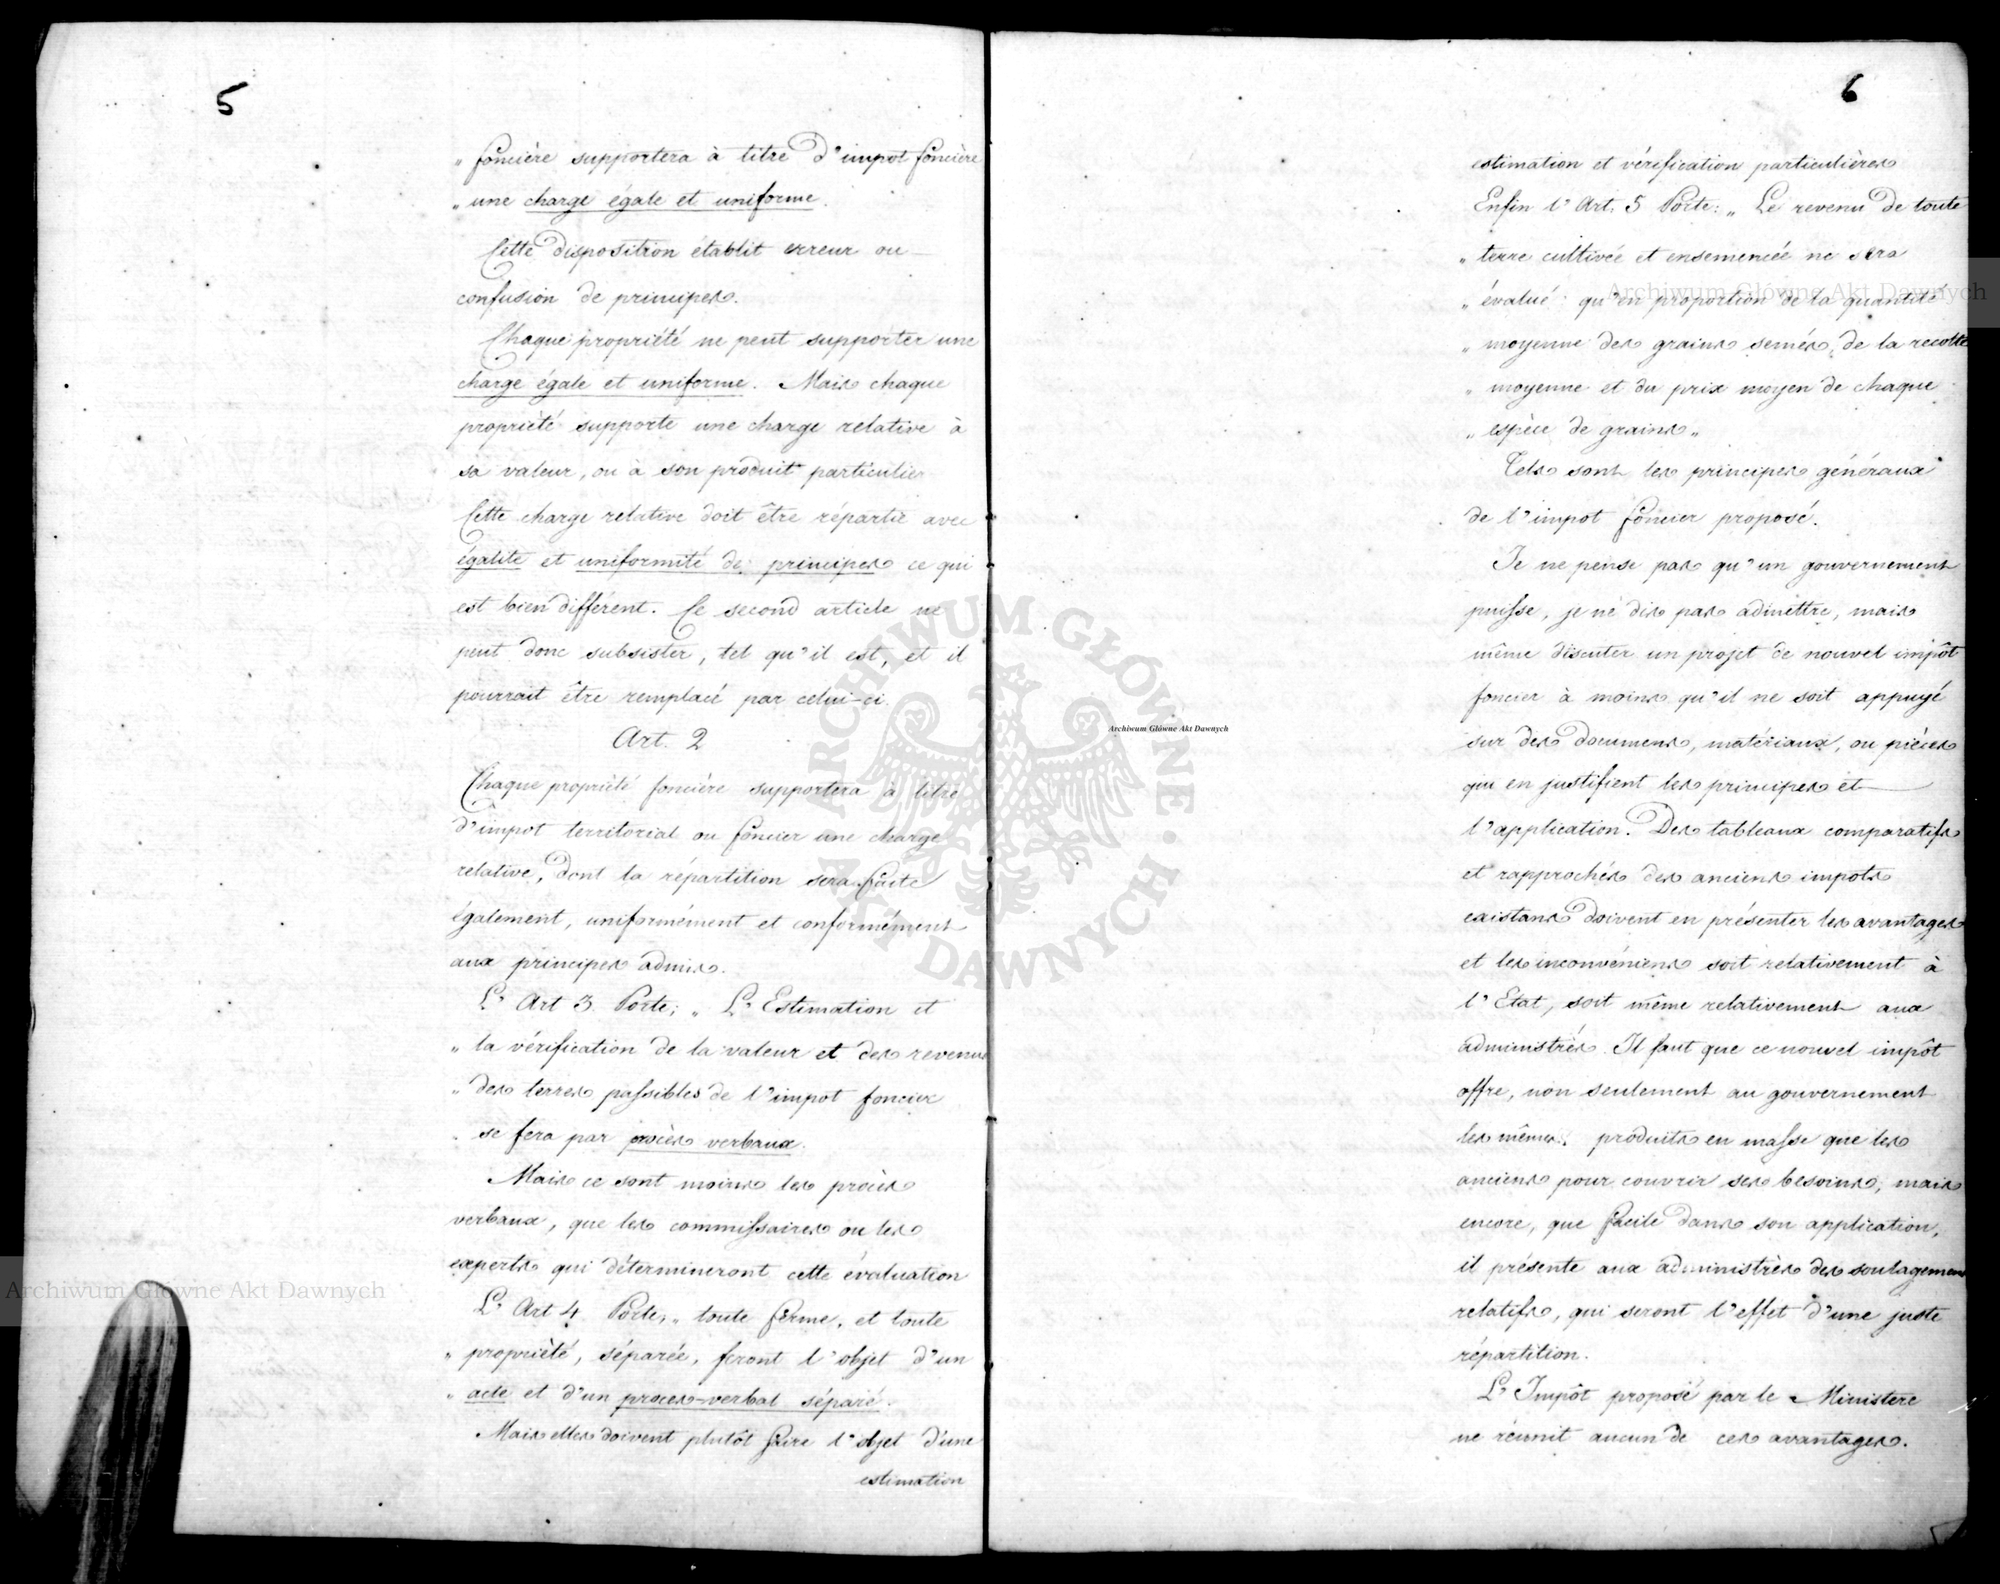 5
„ foncière supportera à titre d'impot foncière
„ une charge égale et uniforme.
Cette disposition établit erreur ou
confusion de principes.
Chaque propriété ne peut supporter une
charge égale et uniforme. Mais chaque
propriété supporte une charge relative à
sa valeur, ou à son produit particulier
Cette charge relative doit être répartie avec
égalité et uniformité de principes ce qui
est bien différent. Ce second article ne
peut donc subsister, tel qu'il est, et il
pourrait être remplacé par celui-ci.
Art. 2
Chaque propriété foncière supportera à titre
d'impot territorial ou foncier une charge
relative, dont la répartition sera faite
également, uniformément et conformément
aux principes admis.
L' Art 3 Porte; „ L' Estimation et
„ la vérification de la valeur et des revenus
„ des terres passibles de l'impot foncier
„ se fera par procès verbaux.
Mais ce sont moins les procès
verbaux, que les commissaires ou les
experts qui détermineront cette évaluation
L' Art 4 Porte, „ toute ferme, et toute
„ propriété, séparée, feront l'objet d'un
„ acte et d'un procès-verbal séparé.
Mais elles doivent plutôt faire l'objet d'une
estimation
6
estimation et vérification particulières
Enfin l'Art. 5 Porte: „ Le revenu de toute
„ terre cultivée et ensemencée ne sera
„ évalué qu'en proportion de la quantité
„ moyenne des grains semés, de la recolte
„ moyenne et du prix moyen de chaque
„ espèce de grains „
Tels sont les principes généraux
de l'impot foncier proposé.
Je ne pense pas qu'un gouvernement
puisse, je ne dis pas admettre, mais
même discuter un projet de nouvel impôt
foncier à moins qu'il ne soit appuyé
sur des documens, matériaux, ou pièces
qui en justifient les principes et
l'application. Des tableaux comparatifs
et rapprochés des anciens impots
existans doivent en présenter les avantages
et les inconvéniens soit relativement à
l'Etat, soit même relativement aux
administrés. Il faut que ce nouvel impôt
offre, non seulement au gouvernement
les mêmes produits en masse que les
anciens pour couvrir ses besoins, mais
encore, que facile dans son application,
il présente aux administrés des soulagemens
relatifs, qui seront l'effet d'une juste
répartition.
L' Impôt proposé par le Ministere
ne réunit aucun de ces avantages.
Archiwum Główne Akt Dawnych
Archiwum Główne Akt Dawnych
Archiwum Główne Akt Dawnych
ARCHIWUM GŁÓWNE AKT DAWNYCH